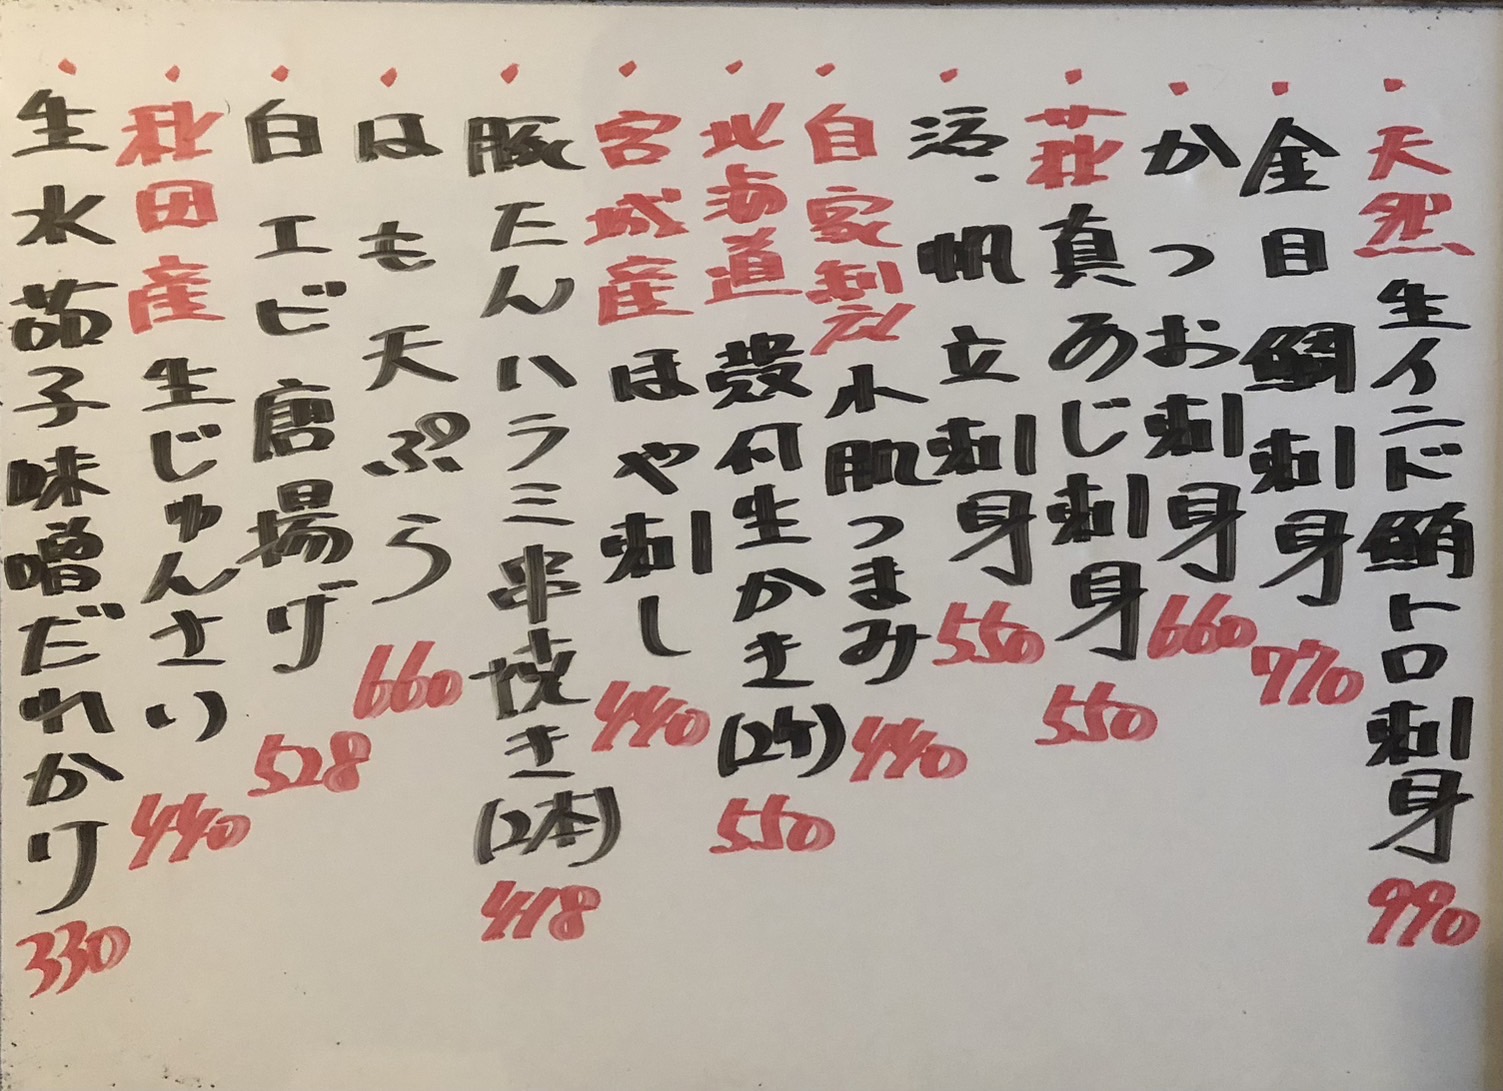 ・天然生インド鮪トロ刺身 990
・金目鯛刺身 770
・かつお刺身 660
・萩真あじ刺身 550
・活・帆立刺身 550
・自家製小肌つまみ 440
・北海道殻付生かき(2ケ) 550
・宮城産ほや刺し 440
・豚たんハラミ串焼き(2本) 418
・はも天ぷら 660
・白エビ唐揚げ 528
・秋田産生じゅんさい 440
・生水茄子味噌だれかけ 330